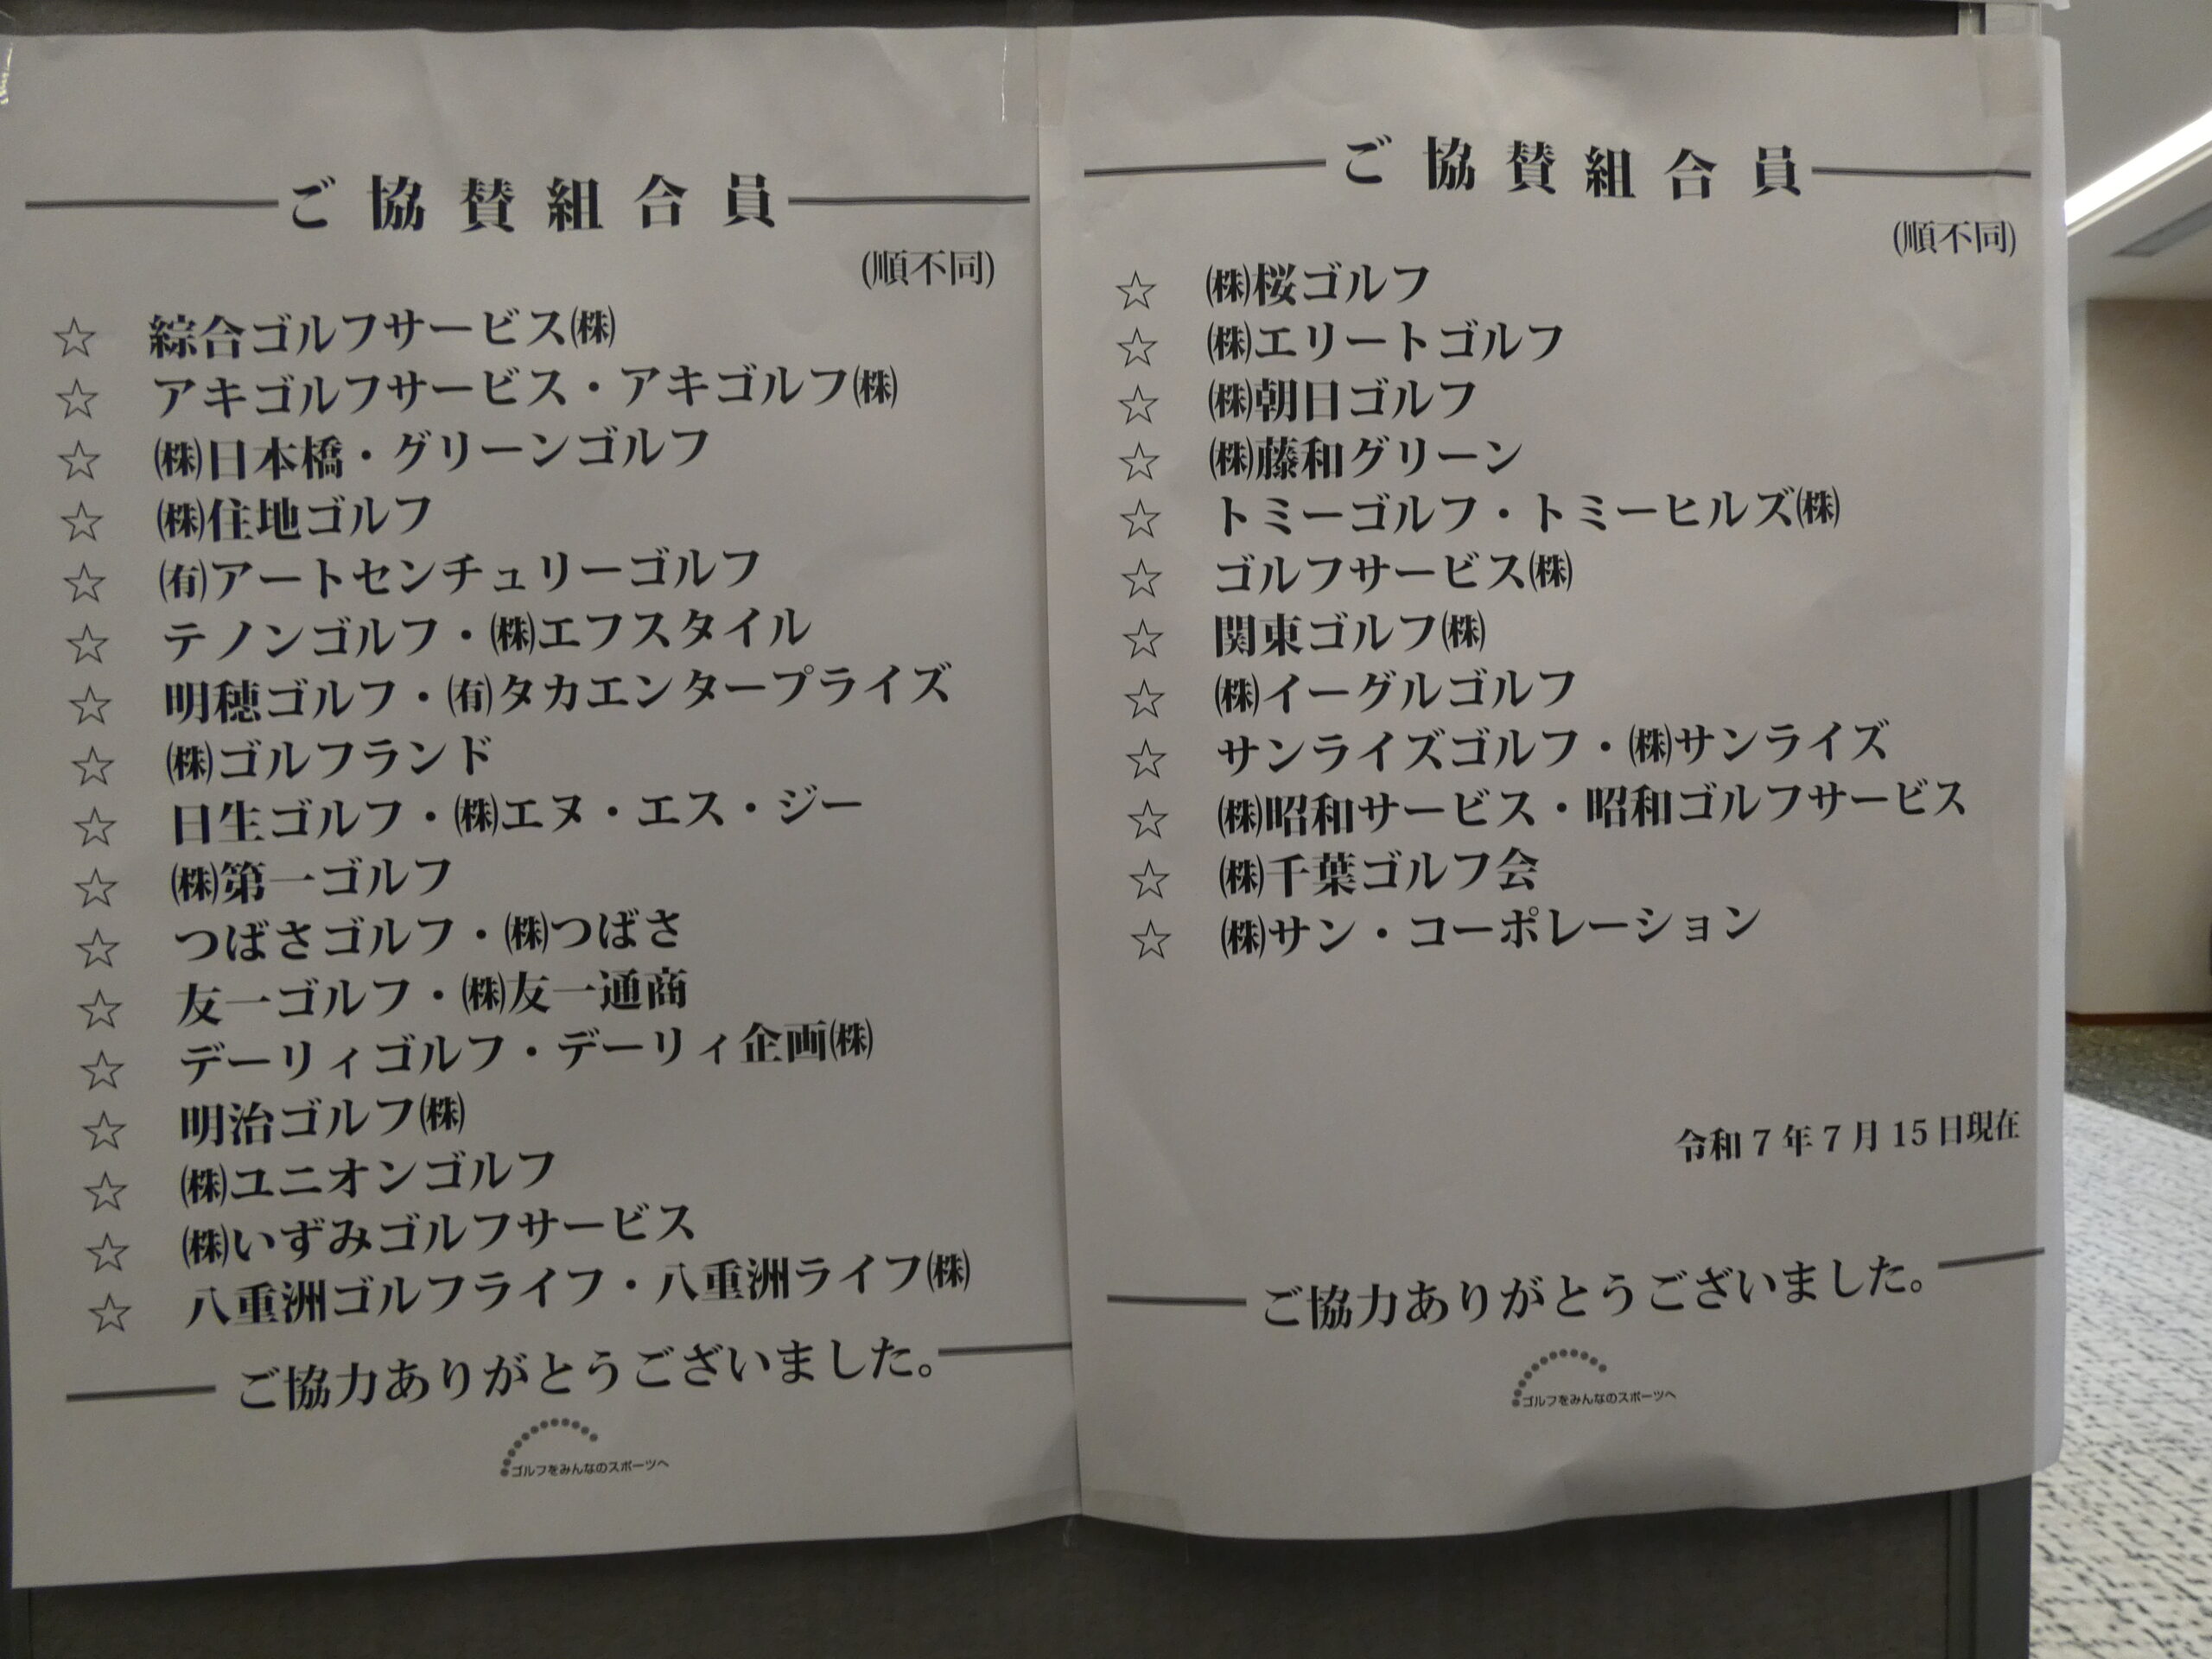 ご協賛組合員
(順不同)
☆ 綜合ゴルフサービス㈱
☆ アキゴルフサービス・アキゴルフ㈱
☆ ㈱日本橋・グリーンゴルフ
☆ ㈱住地ゴルフ
☆ ㈲アートセンチュリーゴルフ
☆ テノンゴルフ・㈱エフスタイル
☆ 明穂ゴルフ・㈲タカエンタープライズ
☆ ㈱ゴルフランド
☆ 日生ゴルフ・㈱エヌ・エス・ジー
☆ ㈱第一ゴルフ
☆ つばさゴルフ・㈱つばさ
☆ 友一ゴルフ・㈱友一通商
☆ デーリィゴルフ・デーリィ企画㈱
☆ 明治ゴルフ㈱
☆ ㈱ユニオンゴルフ
☆ ㈱いずみゴルフサービス
☆ 八重洲ゴルフライフ・八重洲ライフ㈱
ご協力ありがとうございました。
ゴルフをみんなのスポーツへ
ご協賛組合員
(順不同)
☆ ㈱桜ゴルフ
☆ ㈱エリートゴルフ
☆ ㈱朝日ゴルフ
☆ ㈱藤和グリーン
☆ トミーゴルフ・トミーヒルズ㈱
☆ ゴルフサービス㈱
☆ 関東ゴルフ㈱
☆ ㈱イーグルゴルフ
☆ サンライズゴルフ・㈱サンライズ
☆ ㈱昭和サービス・昭和ゴルフサービス
☆ ㈱千葉ゴルフ会
☆ ㈱サン・コーポレーション
令和7年7月15日現在
ご協力ありがとうございました。
ゴルフをみんなのスポーツへ